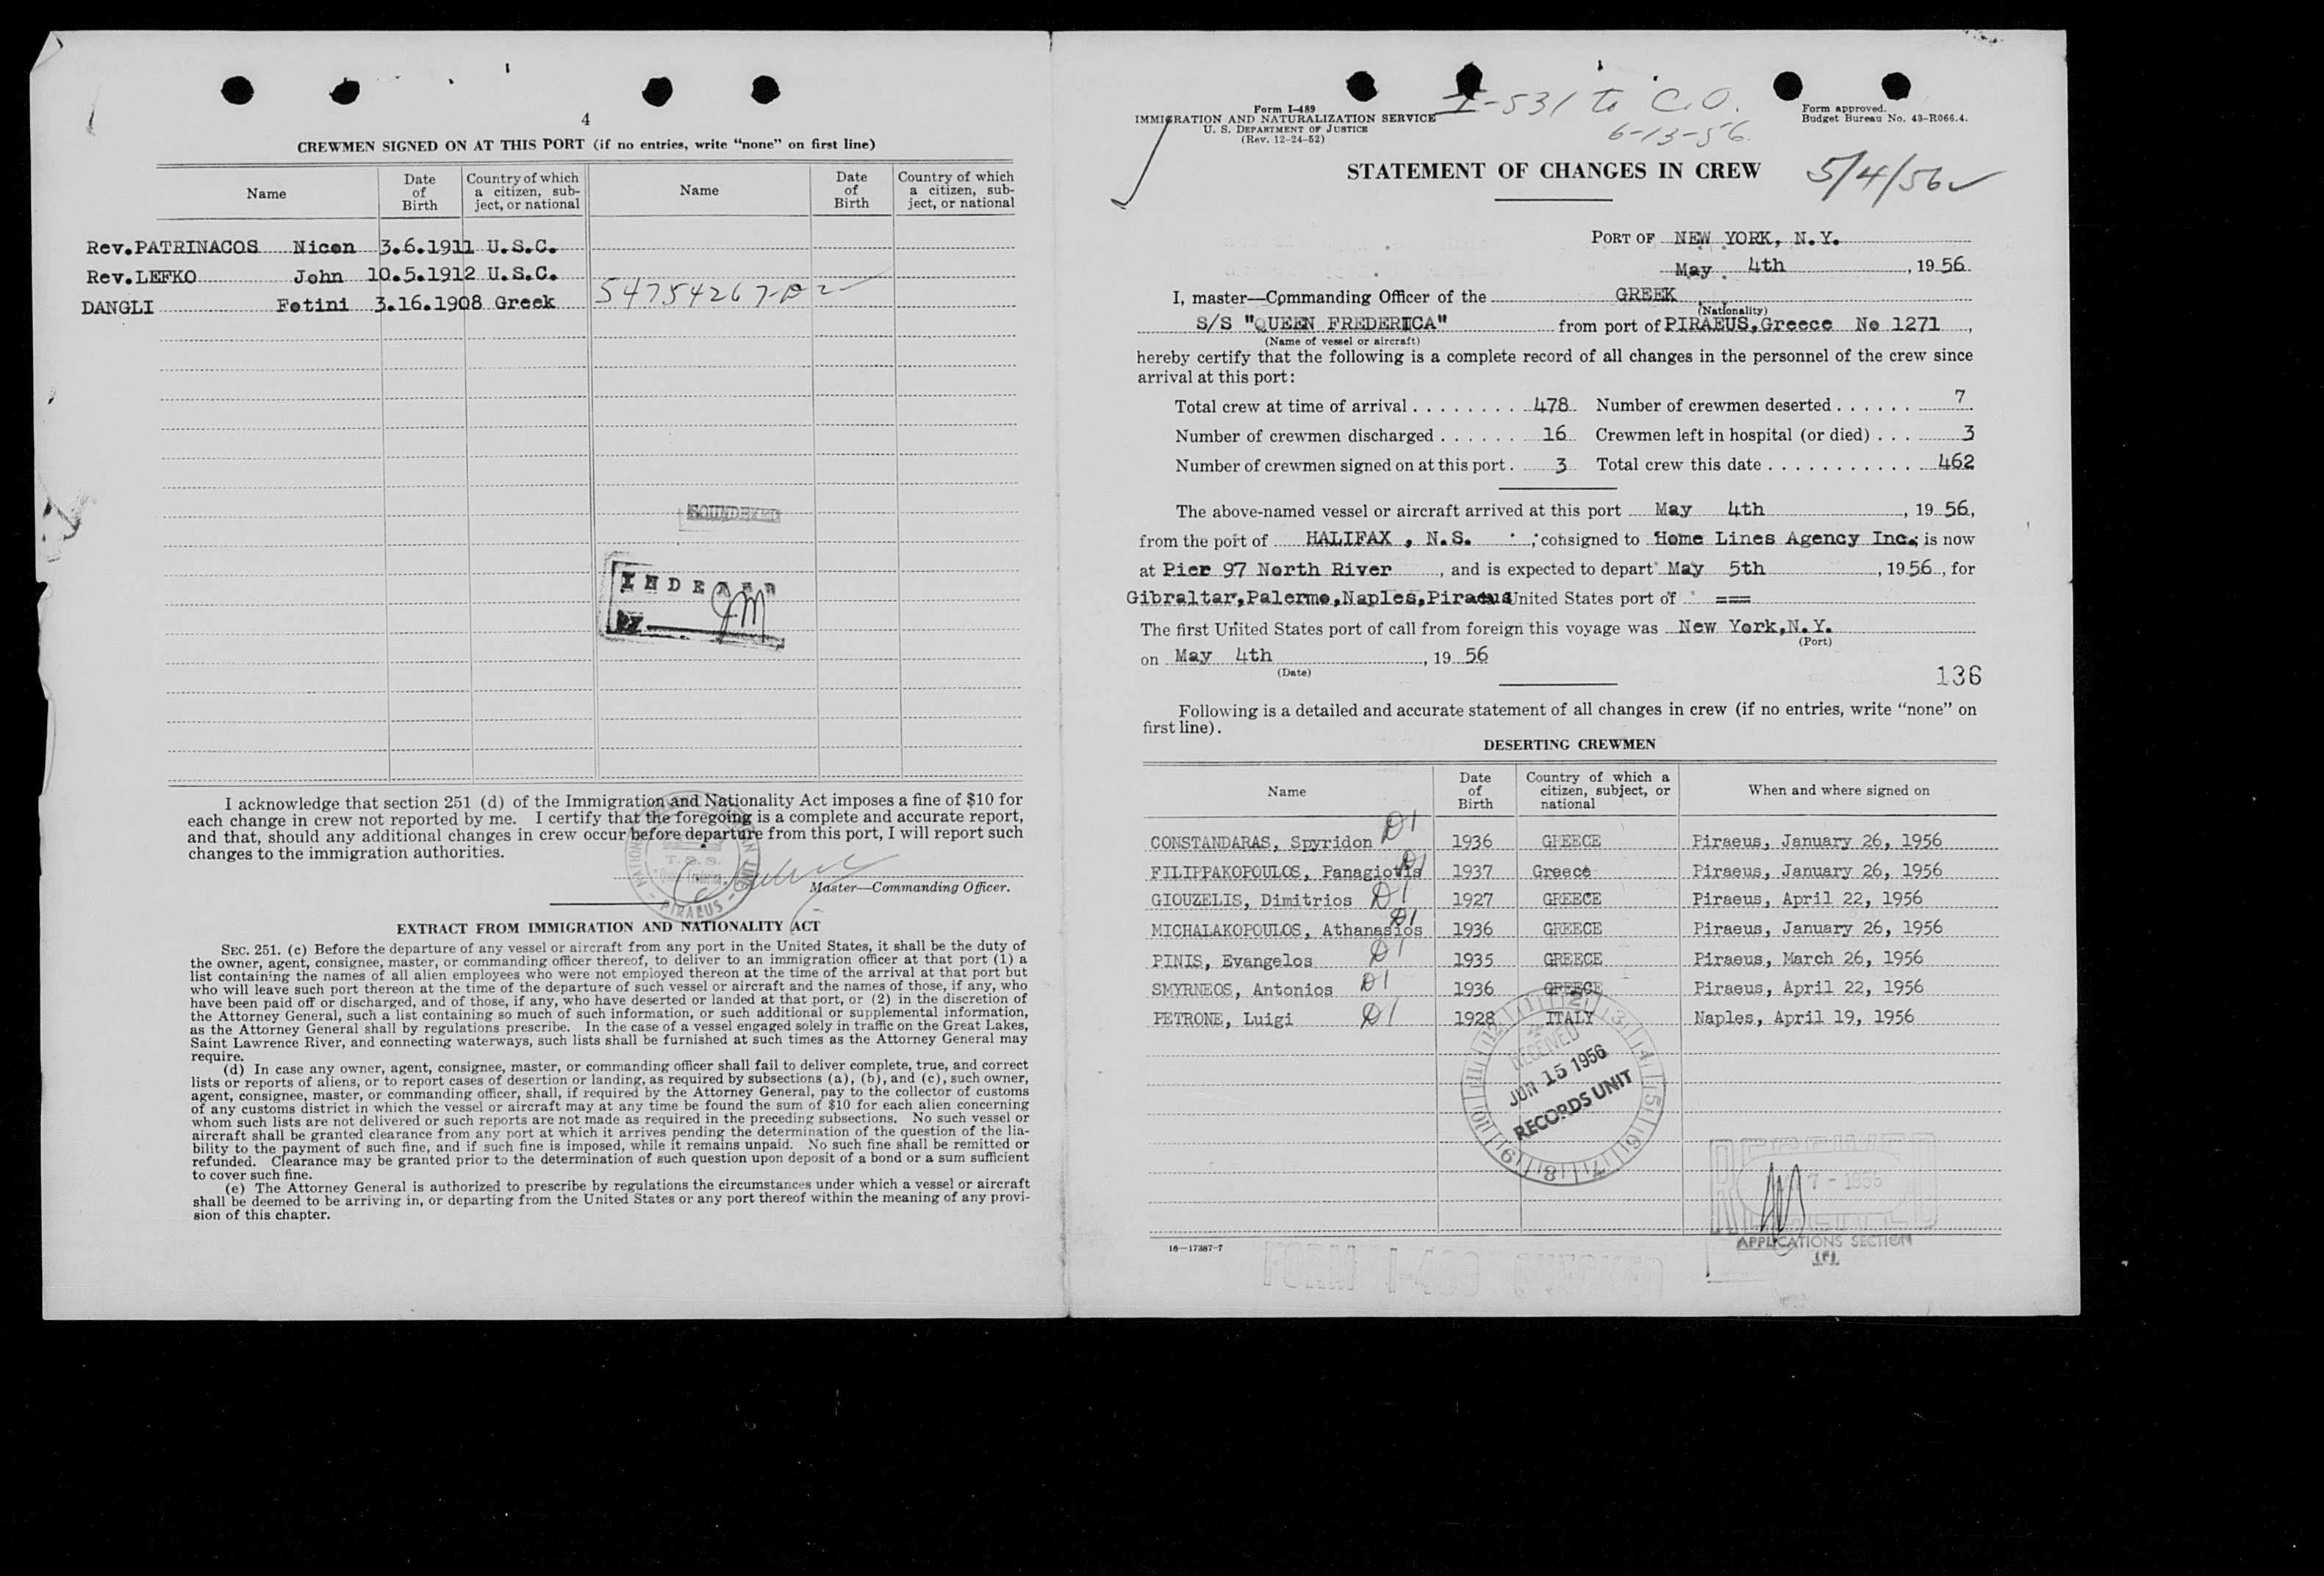 4
CREWMEN SIGNED ON AT THIS PORT (if no entries, write "none" on first line)
Name
Date of Birth
Country of which a citizen, subject, or national
Name
Date of Birth
Country of which a citizen, subject, or national
Rev.PATRINACOS Nicon 3.6.1911 U.S.C.
Rev.LEFKO John 10.5.1912 U.S.C.
DANGLI Fotini 3.16.1908 Greek
SOUNDEXED
INDEXED
BY JM
I acknowledge that section 251 (d) of the Immigration and Nationality Act imposes a fine of $10 for
each change in crew not reported by me. I certify that the foregoing is a complete and accurate report,
and that, should any additional changes in crew occur before departure from this port, I will report such
changes to the immigration authorities.
T.S.S.
PIRAEUS
Master—Commanding Officer.
EXTRACT FROM IMMIGRATION AND NATIONALITY ACT
SEC. 251. (c) Before the departure of any vessel or aircraft from any port in the United States, it shall be the duty of
the owner, agent, consignee, master, or commanding officer thereof, to deliver to an immigration officer at that port (1) a
list containing the names of all alien employees who were not employed thereon at the time of the arrival at that port but
who will leave such port thereon at the time of the departure of such vessel or aircraft and the names of those, if any, who
have been paid off or discharged, and of those, if any, who have deserted or landed at that port, or (2) in the discretion of
the Attorney General, such a list containing so much of such information, or such additional or supplemental information,
as the Attorney General shall by regulations prescribe. In the case of a vessel engaged solely in traffic on the Great Lakes,
Saint Lawrence River, and connecting waterways, such lists shall be furnished at such times as the Attorney General may
require.
(d) In case any owner, agent, consignee, master, or commanding officer shall fail to deliver complete, true, and correct
lists or reports of aliens, or to report cases of desertion or landing, as required by subsections (a), (b), and (c), such owner,
agent, consignee, master, or commanding officer, shall, if required by the Attorney General, pay to the collector of customs
of any customs district in which the vessel or aircraft may at any time be found the sum of $10 for each alien concerning
whom such lists are not delivered or such reports are not made as required in the preceding subsections. No such vessel or
aircraft shall be granted clearance from any port at which it arrives pending the determination of the question of the lia-
bility to the payment of such fine, and if such fine is imposed, while it remains unpaid. No such fine shall be remitted or
refunded. Clearance may be granted prior to the determination of such question upon deposit of a bond or a sum sufficient
to cover such fine.
(e) The Attorney General is authorized to prescribe by regulations the circumstances under which a vessel or aircraft
shall be deemed to be arriving in, or departing from the United States or any port thereof within the meaning of any provi-
sion of this chapter.
Form I-489
IMMIGRATION AND NATURALIZATION SERVICE
U. S. DEPARTMENT OF JUSTICE
(Rev. 12-24-52)
I-531 to C.O.
6-13-56
Form approved.
Budget Bureau No. 43-R066.4.
STATEMENT OF CHANGES IN CREW
5/4/56
PORT OF NEW YORK, N.Y.
May 4th, 19 56
I, master—Commanding Officer of the GREEK
(Nationality)
S/S "QUEEN FREDERICA" from port of PIRAEUS,Greece No 1271,
(Name of vessel or aircraft)
hereby certify that the following is a complete record of all changes in the personnel of the crew since
arrival at this port:
Total crew at time of arrival . . . . . . . . 478 Number of crewmen deserted . . . . . . 7
Number of crewmen discharged . . . . . . 16 Crewmen left in hospital (or died) . . . 3
Number of crewmen signed on at this port . 3 Total crew this date . . . . . . . . . . . . 462
The above-named vessel or aircraft arrived at this port May 4th, 19 56,
from the port of HALIFAX , N.S. ; consigned to Home Lines Agency Inc.; is now
at Pier 97 North River, and is expected to depart May 5th, 19 56, for
Gibraltar,Palermo,Naples,Piraeus United States port of ===
The first United States port of call from foreign this voyage was New York,N.Y.
(Port)
on May 4th, 19 56
(Date)
136
Following is a detailed and accurate statement of all changes in crew (if no entries, write "none" on
first line).
DESERTING CREWMEN
Name
Date of Birth
Country of which a citizen, subject, or national
When and where signed on
CONSTANDARAS, Spyridon D1 1936 GREECE Piraeus, January 26, 1956
FILIPPAKOPOULOS, Panagiotis D1 1937 Greece Piraeus, January 26, 1956
GIOUZELIS, Dimitrios D1 1927 GREECE Piraeus, April 22, 1956
MICHALAKOPOULOS, Athanasios D1 1936 GREECE Piraeus, January 26, 1956
PINIS, Evangelos D1 1935 GREECE Piraeus, March 26, 1956
SMYRNEOS, Antonios D1 1936 GREECE Piraeus, April 22, 1956
PETRONE, Luigi D1 1928 ITALY Naples, April 19, 1956
RECEIVED
JUN 15 1956
RECORDS UNIT
APPLICATIONS SECTION
16—17387-7